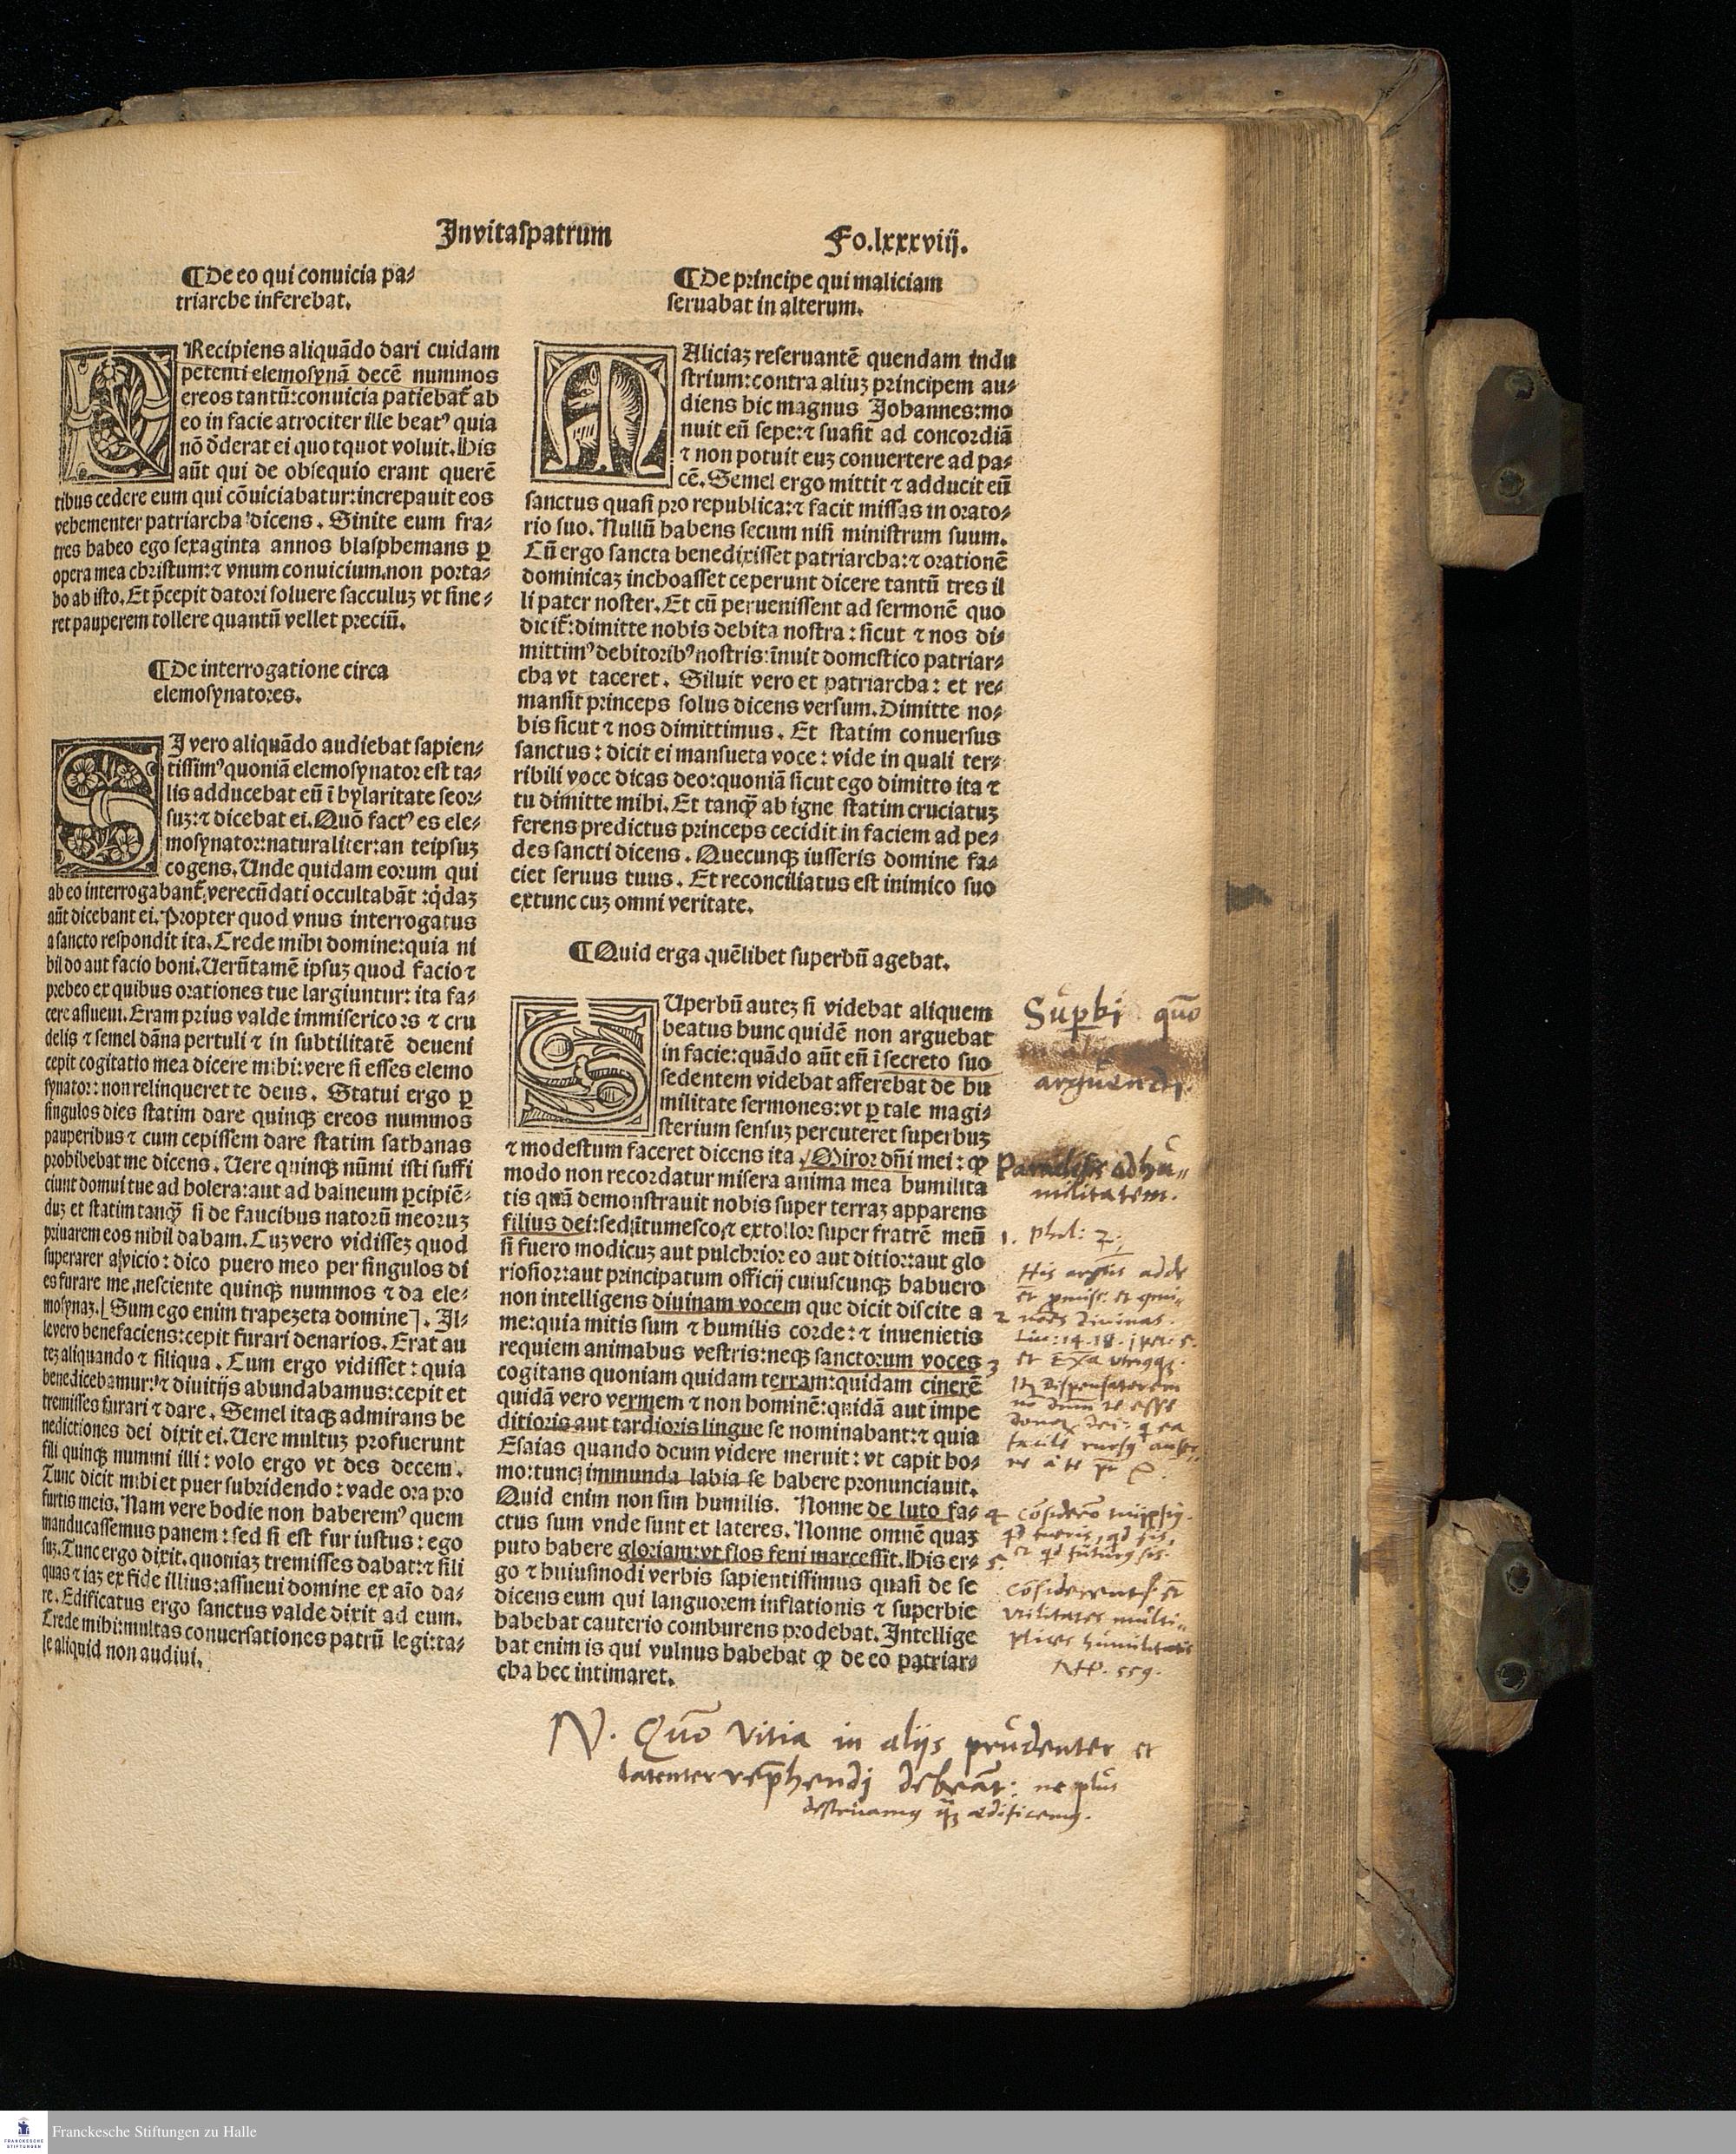 Jnvitaspatrum
Fo.lxxxviij.
¶De eo qui conuicia pa⸗
triarche inferebat.
PRecipiens aliquādo dari cuidam
petenti elemosynā decē nummos
ereos tantū:conuicia patiebat̄ ab
eo in facie atrociter ille beatꝰ quia
nō dederat ei quotquot voluit.His
aūt qui de obsequio erant querē
tibus cedere eum qui cōuiciabatur:increpauit eos
vehementer patriarcha dicens. Sinite eum fra⸗
tres habeo ego sexaginta annos blasphemans ꝑ
opera mea christum:⁊ vnum conuicium non porta⸗
bo ab isto. Et p̄cepit datori soluere sacculuꝫ vt sine⸗
ret pauperem tollere quantū vellet preciū.
¶De interrogatione circa
elemosynatores.
SJ vero aliquādo audiebat sapien⸗
tissimꝰ quoniā elemosynator est ta⸗
lis adducebat eū ī hylaritate seor⸗
suꝫ:⁊ dicebat ei.Quō factꝰ es ele⸗
mosynator:naturaliter:an teipsuꝫ
cogens.Unde quidam eorum qui
ab eo interrogabant̄:verecūdati occultabāt:q̇daꝫ
aūt dicebant ei.Propter quod vnus interrogatus
a sancto respondit ita.Crede mihi domine:quia ni
hil do aut facio boni.Uerūtamē ipsuꝫ quod facio ⁊
prebeo ex quibus orationes tue largiuntur: ita fa⸗
cere assueui.Eram prius valde immisericors ⁊ cru
delis ⁊ semel dāna pertuli ⁊ in subtilitatē deueni
cepit cogitatio mea dicere mihi:vere si esses elemo
synator: non relinqueret te deus. Statui ergo ꝑ
singulos dies statim dare quinqꝫ ereos nummos
pauperibus ⁊ cum cepissem dare statim sathanas
prohibebat me dicens. Uere quinqꝫ nūmi isti suffi
ciunt domui tue ad holera:aut ad balneum ꝑcipiē⸗
duꝫ et statim tanqꝫ si de faucibus natorū meoruꝫ
priuarem eos nihil dabam.Cuꝫ vero vidisseꝫ quod
superarer a vicio: dico puero meo per singulos di
es furare me,nesciente quinqꝫ nummos ⁊ da ele⸗
mosynaꝫ.[Sum ego enim trapezeta domine]. Jl⸗
le vero benefaciens:cepit furari denarios. Erat au
teꝫ aliquando ⁊ siliqua. Cum ergo vidisset: quia
benedicebamur:⁊ diuitijs abundabamus:cepit et
tremisses furari ⁊ dare. Semel itaqꝫ admirans be
nedictiones dei dixit ei.Uere multuꝫ profuerunt
fili quinqꝫ nummi illi: volo ergo vt des decem.
Tunc dicit mihi et puer subridendo: vade ora pro
furtis meis.Nam vere hodie non haberemꝰ quem
manducassemus panem: sed si est fur iustus: ego
suꝫ.Tunc ergo dixit.quoniaꝫ tremisses dabat:⁊ sili
quas ⁊ iaꝫ ex fide illius:assueui domine ex aīo da⸗
re. Edificatus ergo sanctus valde dixit ad eum.
Crede mihi:multas conuersationes patrū legi:ta⸗
le aliquid non audiui.
¶De principe qui maliciam
seruabat in alterum.
MAliciaꝫ reseruantē quendam indu
strium:contra aliuꝫ principem au⸗
diens hic magnus Johannes:mo
nuit eū sepe:⁊ suasit ad concordiā
⁊ non potuit euꝫ conuertere ad pa⸗
cē. Semel ergo mittit ⁊ adducit eū
sanctus quasi pro republica:⁊ facit missas in orato⸗
rio suo. Nullū habens secum nisi ministrum suum.
Cū ergo sancta benedixisset patriarcha:⁊ orationē
dominicaꝫ inchoasset ceperunt dicere tantū tres il
li pater noster. Et cū peruenissent ad sermonē quo
dicit̄:dimitte nobis debita nostra: sicut ⁊ nos di⸗
mittimꝰ debitoribꝰ nostris:īnuit domestico patriar⸗
cha vt taceret. Siluit vero et patriarcha: et re⸗
mansit princeps solus dicens versum.Dimitte no⸗
bis sicut ⁊ nos dimittimus. Et statim conuersus
sanctus: dicit ei mansueta voce: vide in quali ter⸗
ribili voce dicas deo:quoniā sicut ego dimitto ita ⁊
tu dimitte mihi. Et tanqꝫ ab igne statim cruciatuꝫ
ferens predictus princeps cecidit in faciem ad pe⸗
des sancti dicens. Quecunqꝫ iusseris domine fa⸗
ciet seruus tuus. Et reconciliatus est inimico suo
extunc cuꝫ omni veritate.
¶Quid erga quēlibet superbū agebat.
SUperbū auteꝫ si videbat aliquem
beatus hunc quidē non arguebat
in facie:quādo aūt eū ī secreto suo
sedentem videbat afferebat de hu
militate sermones:vt ꝑ tale magi⸗
sterium sensuꝫ percuteret superbuꝫ
⁊ modestum faceret dicens ita. Miror dn̄i mei: ꝙ
modo non recordatur misera anima mea humilita
tis quā demonstrauit nobis super terraꝫ apparens
filius dei:sed ītumesco,⁊ extollor super fratrē meū
si fuero modicuꝫ aut pulchrior eo aut ditior:aut glo
riosior:aut principatum officij cuiuscunqꝫ habuero
non intelligens diuinam vocem que dicit discite a
me:quia mitis sum ⁊ humilis corde:⁊ inuenietis
requiem animabus vestris:neqꝫ sanctorum voces
cogitans quoniam quidam terram:quidam cinerē
quidā vero vermem ⁊ non hominē:quidā aut impe
ditioris aut tardioris lingue se nominabant:⁊ quia
Esaias quando deum videre meruit: vt capit ho⸗
mo:tunc immunda labia se habere pronunciauit.
Quid enim non sim humilis. Nonne de luto fa⸗
ctus sum vnde sunt et lateres. Nonne omnē quaꝫ
puto habere gloriam:vt flos feni marcessit.His er⸗
go ⁊ huiusmodi verbis sapientissimus quasi de se
dicens eum qui languorem inflationis ⁊ superbie
habebat cauterio comburens prodebat. Jntellige
bat enim is qui vulnus habebat ꝙ de eo patriar⸗
cha hec intimaret.
Superbi quō
arguendi.
ad hu⸗
militatem.
1. phil: 2.
2
3
4
5.
559.
N. Quō vitia in alijs prudenter et
latenter rep̄hendj debeāt: ne plus
destruamus qꝫ ædificemus.
Franckesche Stiftungen zu Halle